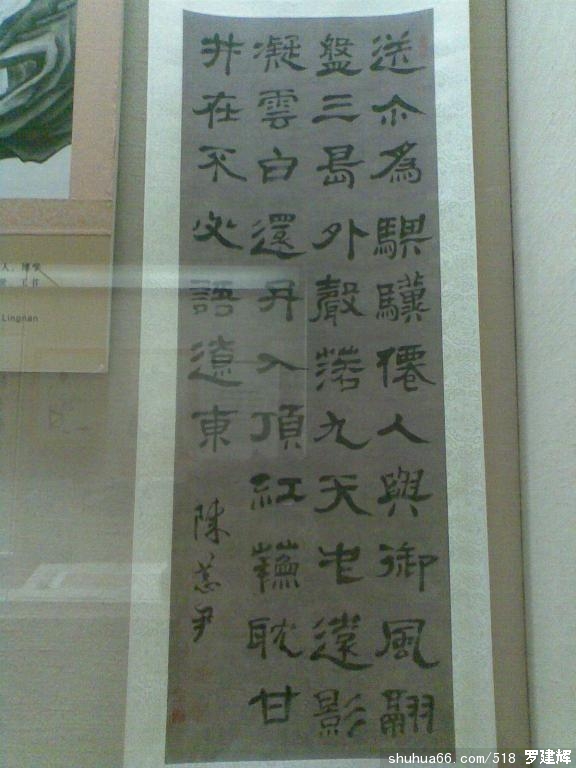 送尒為騏驥僊人與御風翮
盤三島外聲落九天中遠影
凝雲白還丹入頂紅蘓耽甘
井在不必語遼東
陳恭尹
Lingnan
shuhua66.com/518 罗建辉